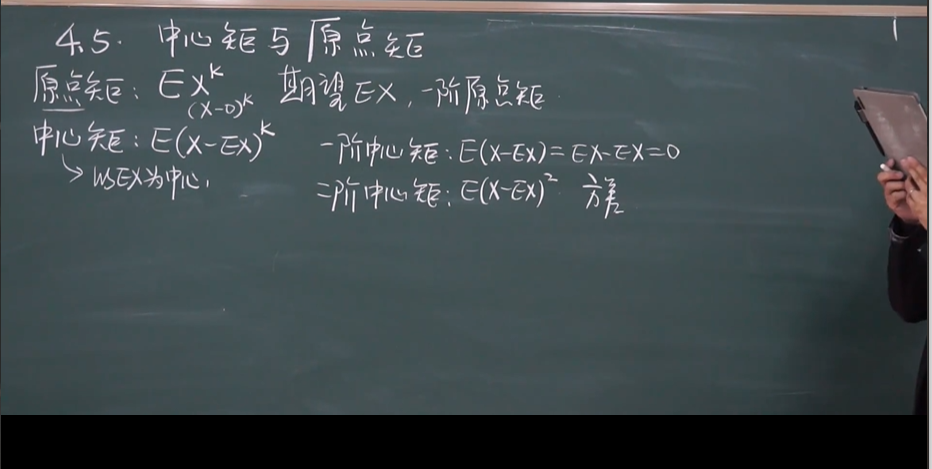 4.5. 中心矩与原点矩
原点矩: EX^k 期望EX, 一阶原点矩.
(X-0)^k
中心矩: E(X-EX)^k
一阶中心矩: E(X-EX)=EX-EX=0
↳以EX为中心,
二阶中心矩: E(X-EX)^2 方差